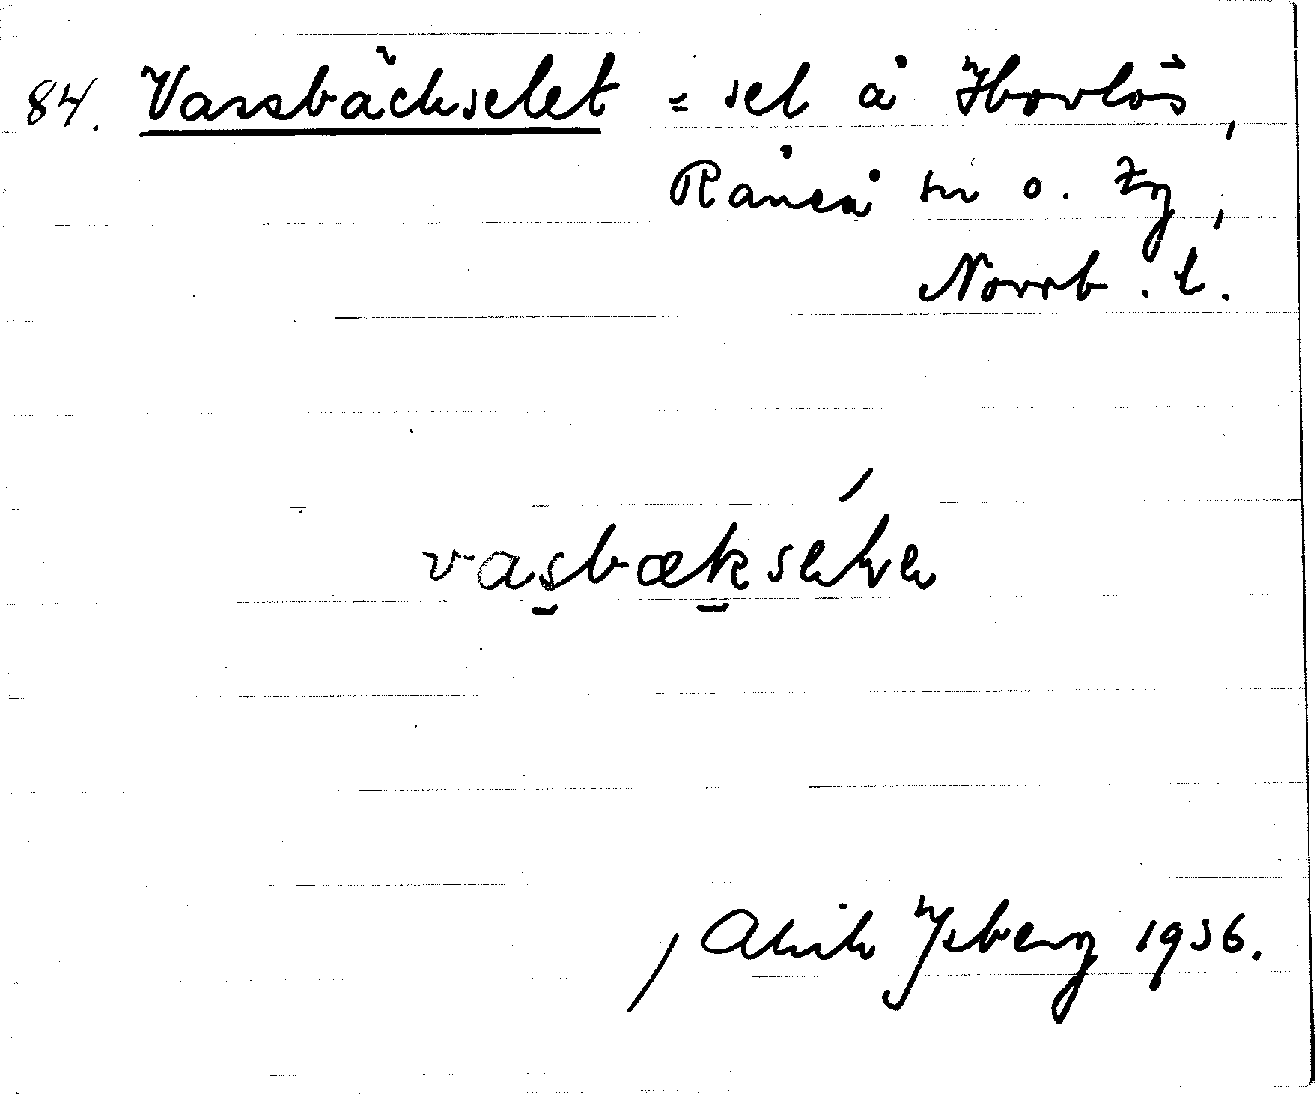 84. Vassbäckselet = sel å Horlås,
Råneå sn o. tg,
Norrb. l.
vasbæksele
Alrik Ysberg 1936.